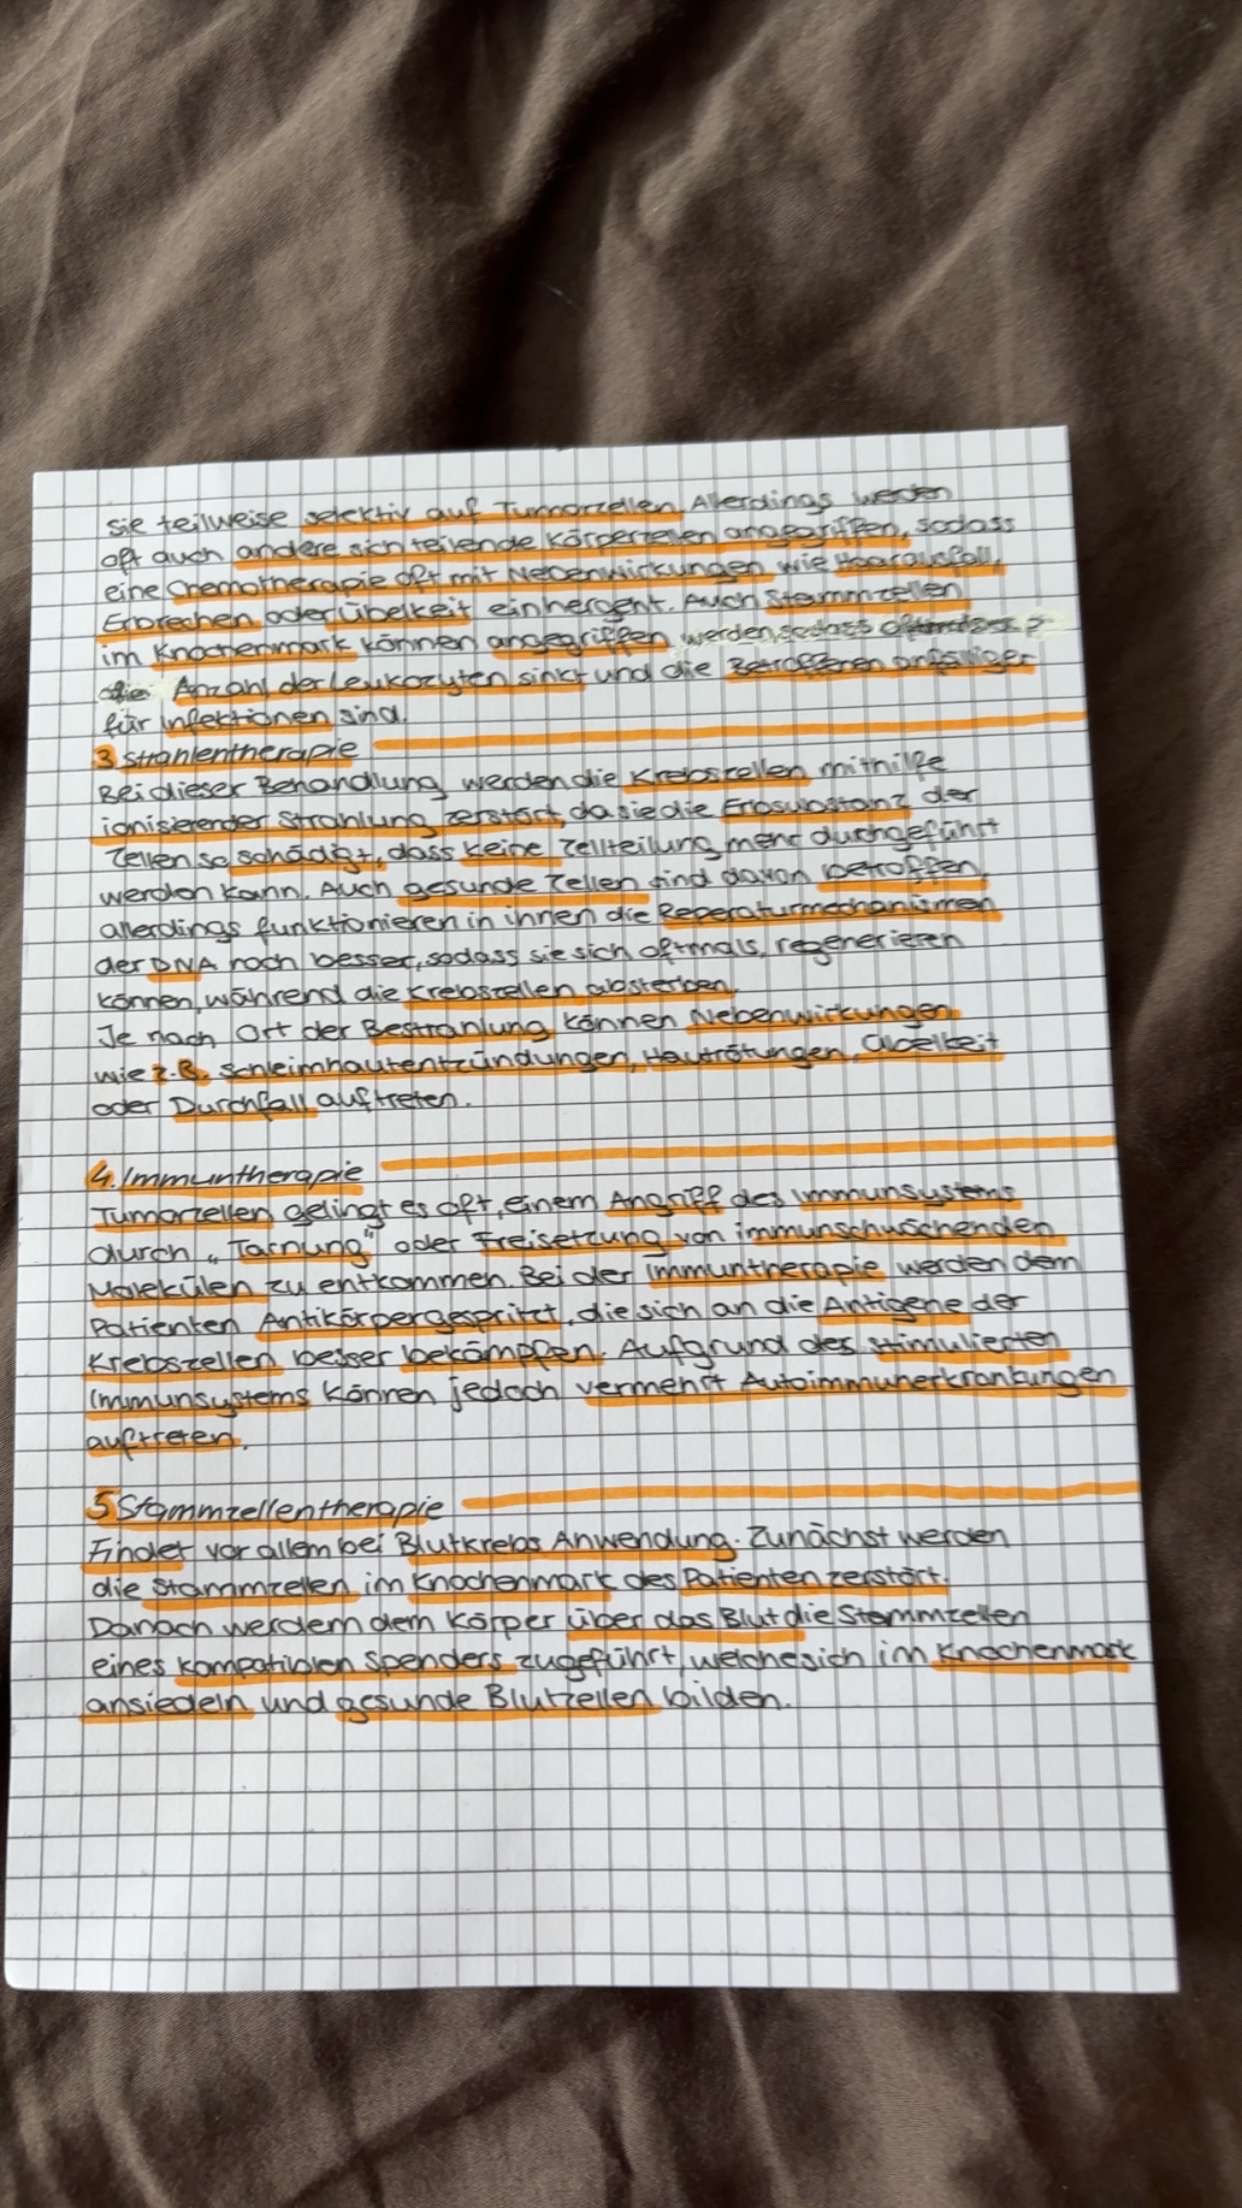 sie teilweise selektiv auf Tumorzellen. Allerdings werden
oft auch andere sich teilende Körperzellen angegriffen, sodass
eine Chemotherapie oft mit Nebenwirkungen wie Haarausfall,
Erbrechen oder Übelkeit einhergeht. Auch Stammzellen
im Knochenmark können angegriffen werden, sodass
die Anzahl der Leukozyten sinkt und die Betroffenen anfälliger
für Infektionen sind.
3 Strahlentherapie
Bei dieser Behandlung werden die Krebszellen mithilfe
ionisierender Strahlung zerstört, da sie die Erbsubstanz der
Zellen so schädigt, dass keine Zellteilung mehr durchgeführt
werden kann. Auch gesunde Zellen sind davon betroffen,
allerdings funktionieren in ihnen die Reperaturmechanismen
der DNA noch besser, sodass sie sich oftmals, regenerieren
können, während die Krebszellen absterben.
Je nach Ort der Bestrahlung können Nebenwirkungen
wie z.B. Schleimhautentzündungen, Hautrötungen, Übelkeit
oder Durchfall auftreten.
4. Immuntherapie
Tumorzellen gelingt es oft, einem Angriff des Immunsystems
durch „Tarnung" oder Freisetzung von immunschwächenden
Molekülen zu entkommen. Bei der Immuntherapie werden dem
Patienten Antikörper gespritzt, die sich an die Antigene der
Krebszellen besser bekämpfen. Aufgrund des stimulierten
Immunsystems können jedoch vermehrt Autoimmunerkrankungen
auftreten.
5 Stammzellentherapie
Findet vor allem bei Blutkrebs Anwendung. Zunächst werden
die Stammzellen im Knochenmark des Patienten zerstört.
Danach werdem dem Körper über das Blut die Stammzellen
eines kompatiblen Spenders zugeführt, welche sich im Knochenmark
ansiedeln und gesunde Blutzellen bilden.